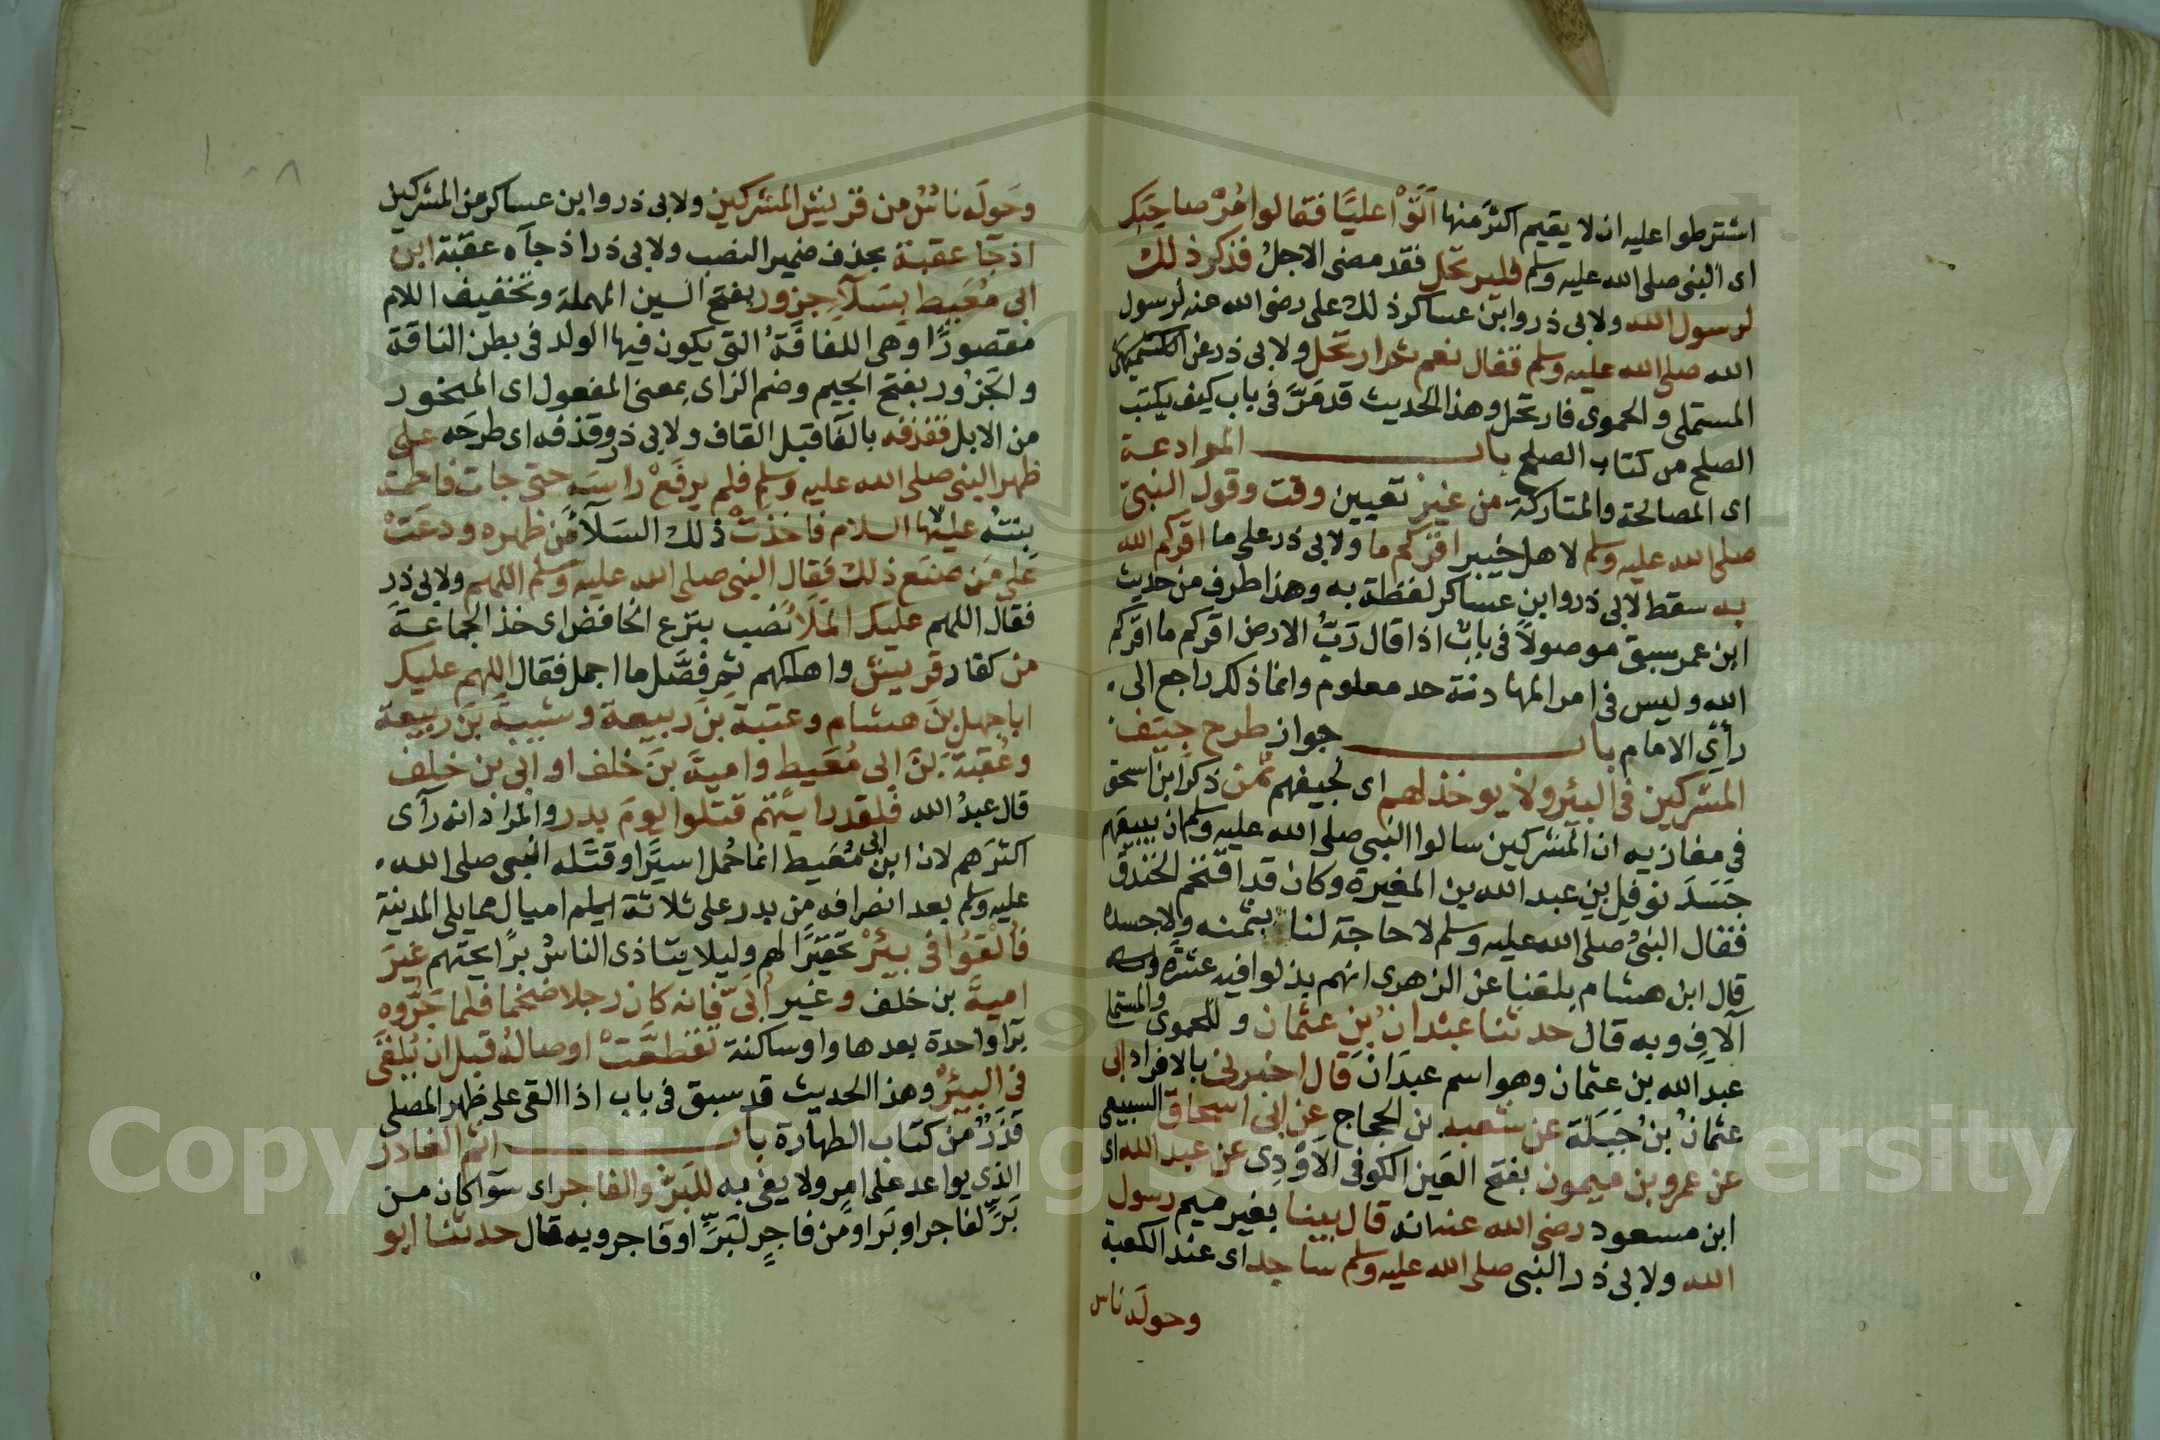 اشترطوا عليه ان لا يقيم اكثر منها اَتَوْا عليًّا فقالوا مُرْ صاحِبَك
اى النبى صلى الله عليه وسلم فليرتحل فقد مضى الاجلُ فذكر ذلك
لرسول الله ولابى ذر وابن عساكر ذلك على رضى الله عنه لرسول
الله صلى الله عليه وسلم فقال نعم ثم ارتحل ولابى ذر عن الكشميهنى
المستملى والحموى فارتحل وهذا الحديث قد مَرَّ فى باب كيف يكتب
الصلح من كتاب الصلح باب الموادعة
اى المصالحة والمتاركة من غير تعيين وقت وقول النبىّ
صلى الله عليه وسلم لاهل خيبر اقركم ما ولابى ذر على ما اقركم الله
به سقط لابى ذر وابن عساكر لفظة به وهذا طرف من حديث
ابن عمر سبق موصولاً فى باب اذا قال رَبُّ الارض اقركم ما اقركم
الله وليس فى امر المهادنة حد معلوم وانما ذلك راجع الى
رأى الامام باب جواز طرح جيَف
المشركين فى البئر ولا يوخذ لهم اى لجيفهم ثمن ذكر ابن اسحق
فى مغازيه ان المشركين سالوا النبى صلى الله عليه وسلم ان يبيعهم
جَسَدَ نوفل بن عبد الله بن المغيرة وكان قد اقتحم الخندق
فقال النبىُ صلى الله عليه وسلم لا حاجة لنا بثمنه ولا جسده
قال ابن هشام بلغنا عن الزهرى انهم بذلوا فيه عشرة
آلافٍ وبه قال حدثنا عبدان بن عثمان وللحموى والمستملى
عبد الله بن عثمان وهو اسم عبدَان قال اخبرنى بالافراد ابى
عثمانُ بنُ جَبَلَة عن شعبة بن الحجاج عن ابى اسحاق السبيعى
عن عمرو بن ميمون بفتح العين الكوفى الاَوْدِى عن عبد الله اى
ابن مسعود رضى الله عنه انه قال بينا بغير ميم رسول
الله ولابى ذر النبى صلى الله عليه وسلم ساجد اى عند الكعبة
وحولَه ناس
وحَولَه ناسٌ من قريش المشركين ولابى ذر وابن عساكر من المشركين
اذ جَآ عقبة بحذف ضمير النصب ولابى ذر اذ جآه عقبة ابن
ابى مُعَيط بِسَلَاجزور بفتح السين المهملة وتخفيف اللام
مقصورًا وهى اللفافَةُ التى يكون فيها الولد فى بطن الناقة
والجَزُور بفتح الجيم وضم الزاى بمعنى المفعول اى المنحور
من الابل فقذفه بالفا قبل القاف ولابى ذر وقذفه اى طرحَه على
ظهر النبى صلى الله عليه وسلم فلم يرفَعْ راسَه حتى جات فاطمة
بنتُه عليها السلام فاخذَتْ ذلك السَلَا من ظهره ودعَتْ
على مَن صنَع ذلك فقال النبى صلى الله عليه وسلم اللهم ولابى ذر
فقال اللهم عليك الملَأ نُصب بنزع الخافض اى خذ الجماعةَ
من كفار قريش واهلكهم ثم فصَّل ما اجمل فقال اللهم عليك
اباجهل بنَ هشام وعتبة بنَ ربيعة وشيبةَ بنَ ربيعة
وعُقبَة بنَ ابى مُعَيط واميةَ بنَ خلف او اُبى بن خلف
قال عبدُ الله فلقد رايتُهم قتلوا يومَ بدر والمراد انه رآى
اكثرَهم لان ابن ابى مُعَيط انما حُمل اسيرًا وقتَله النبى صلى الله
عليه وسلم بعد انصرافه من بدر على ثلاثة اميال مما يلى المدينة
فاُلْقُوا فى بئرْ تحقيرًا لهم وليلا يتاذى الناسُ برايحتهم غيرَ
اميةَ بن خلف وغير اُبَىّ فانه كان رجلا ضخما فلما جَرُّوه
برآ واحدة بعدها واو ساكنة تقطعَتْ اوصالُه قبل ان يُلقَى
فى البئرْ وهذا الحديث قد سبق فى باب اذا القى على ظهر المصلى
قَذَرٌ من كتاب الطهارة باب اثم الغادر
الذى يواعد على امر ولا يفى به للبَرّ والفاجر اى سَوآ كان من
بَرّ لفاجر او بَر او من فاجِرٍ لبَرٍّ او فاجر وبه قال حدثنا ابو
١٠٨
Copyright © King Saud University